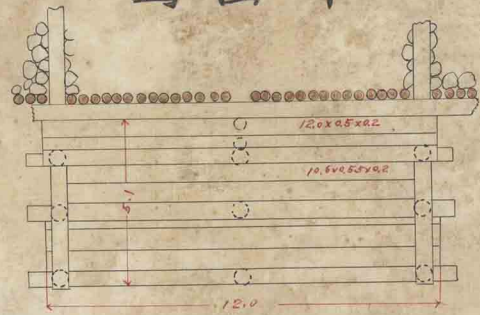 12.0 x 0.5 x 0.2
10.5 x 0.55 x 0.2
5.1
12.0